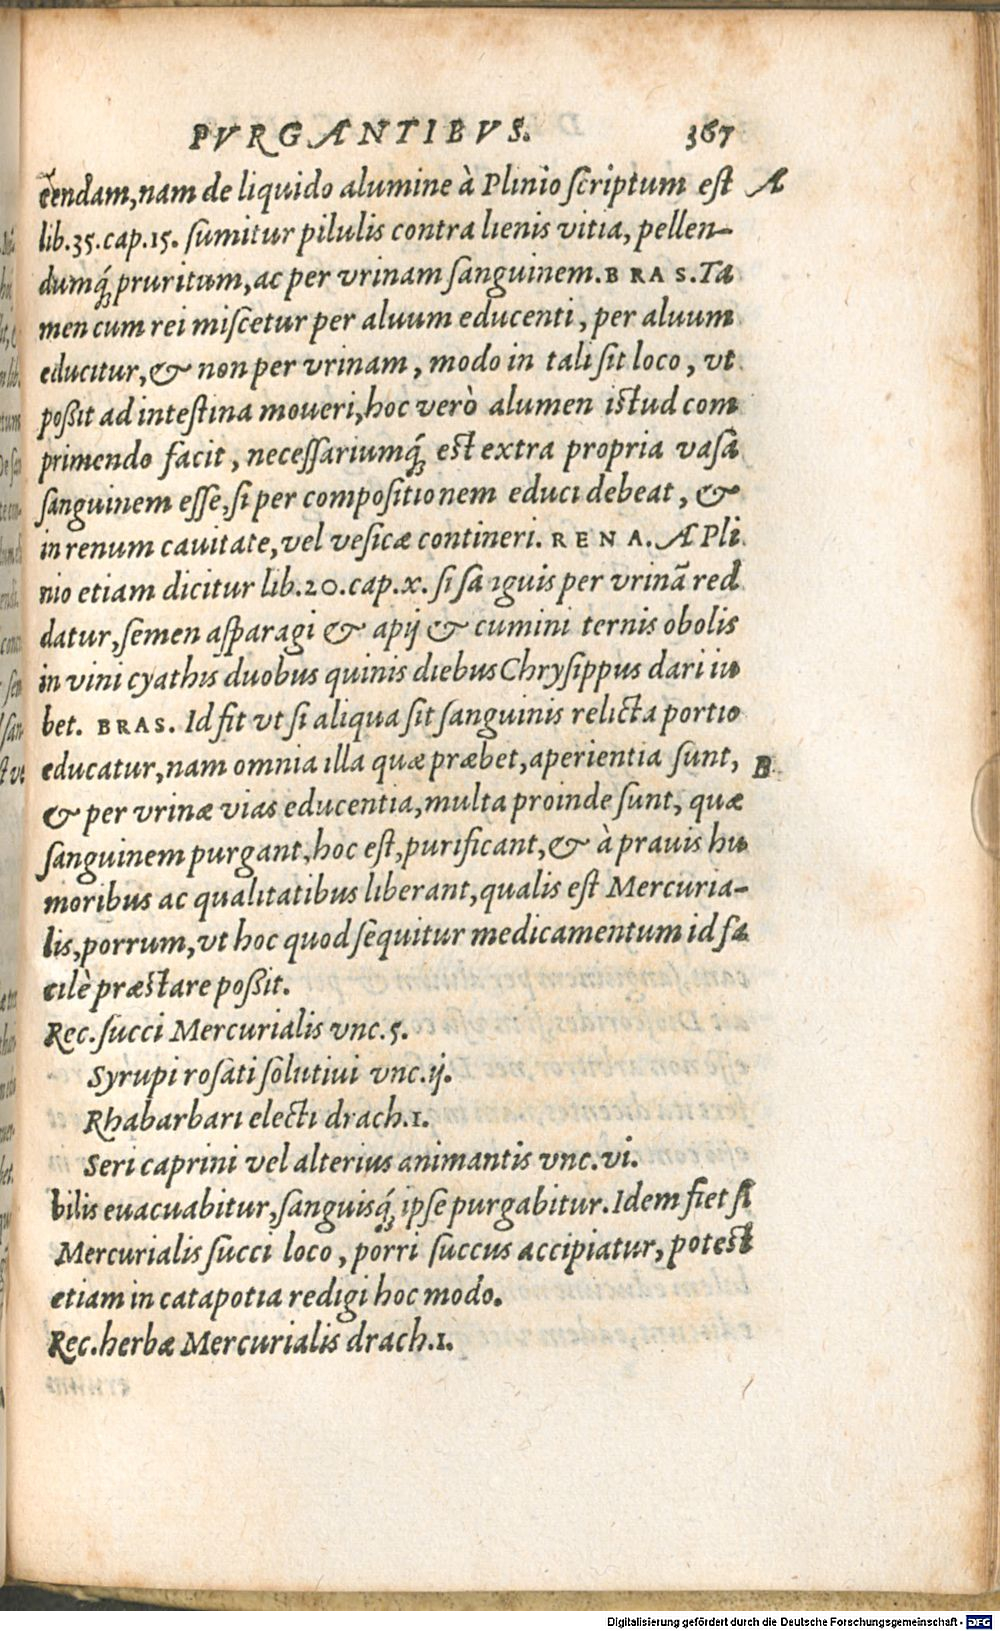 PVRGANTIBVS. 367
cendam, nam de liquido alumine à Plinio scriptum est A
lib.35.cap.15. sumitur pilulis contra lienis vitia, pellen-
dumq́ꝫ pruritum, ac per vrinam sanguinem. BRAS. Ta
men cum rei miscetur per aluum educenti, per aluum
educitur, & non per vrinam, modo in tali sit loco, vt
poßit ad intestina moueri, hoc verò alumen istud com
primendo facit, necessariumq́ꝫ est extra propria vasa
sanguinem esse, si per compositionem educi debeat, &
in renum cauitate, vel vesicæ contineri. RENA. A Pli
nio etiam dicitur lib.20.cap.x. si sanguis per vrinã red
datur, semen asparagi & apij & cumini ternis obolis
in vini cyathis duobus quinis diebus Chrysippus dari iu
bet. BRAS. Id fit vt si aliqua sit sanguinis relicta portio
educatur, nam omnia illa quæ præbet, aperientia sunt, B
& per vrinæ vias educentia, multa proinde sunt, quæ
sanguinem purgant, hoc est, purificant, & à prauis hu
moribus ac qualitatibus liberant, qualis est Mercuria-
lis, porrum, vt hoc quod sequitur medicamentum id fa
cilè præstare poßit.
Rec. succi Mercurialis vnc.5.
Syrupi rosati solutiui vnc.ij.
Rhabarbari electi drach.1.
Seri caprini vel alterius animantis vnc.vi.
bilis euacuabitur, sanguisq́ꝫ ipse purgabitur. Idem fiet si
Mercurialis succi loco, porri succus accipiatur, potest
etiam in catapotia redigi hoc modo.
Rec. herbæ Mercurialis drach.1.
Digitalisierung gefördert durch die Deutsche Forschungsgemeinschaft - DFG